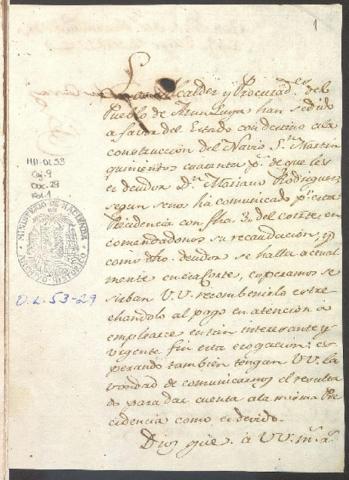 1
Los Alcaldes y Procurad.es del
Pueblo de han cedido
a favor del Estado con destino a la
construccion del Navio S.n Martin
quinientos cuarenta p.s de que les
es deudor D.n Mariano Rodriguez,
segun se nos ha comunicado p.r esta
Presidencia con fha 3. del corr.te en
comendandonos su recaudacion, y
como dho. deudor se halla actual
mente en esa Corte, esperamos se
sirban V.V. reconbenirlo estre
chandolo al pago en atencion a
emplearse en tan interesante y
urgente fin esta erogacion: es
perando tambien tengan VV. la
vondad de comunicarnos el resulta
do para dar cuenta a la misma Pre
cidencia como es devido.
Dios gũe. a VV. m.s a.s
MH-OL53
Caj. 9
Doc. 29
Fol. 1
MINISTERIO DE HACIENDA
ARCHIVO
O.L. 53-29